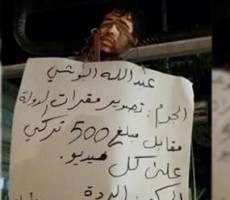 عبدالله البوشي
الجرم : تصوير مقرات لدولة
مقابل مبلغ 500 تركي
على كل فيديو.
الردة